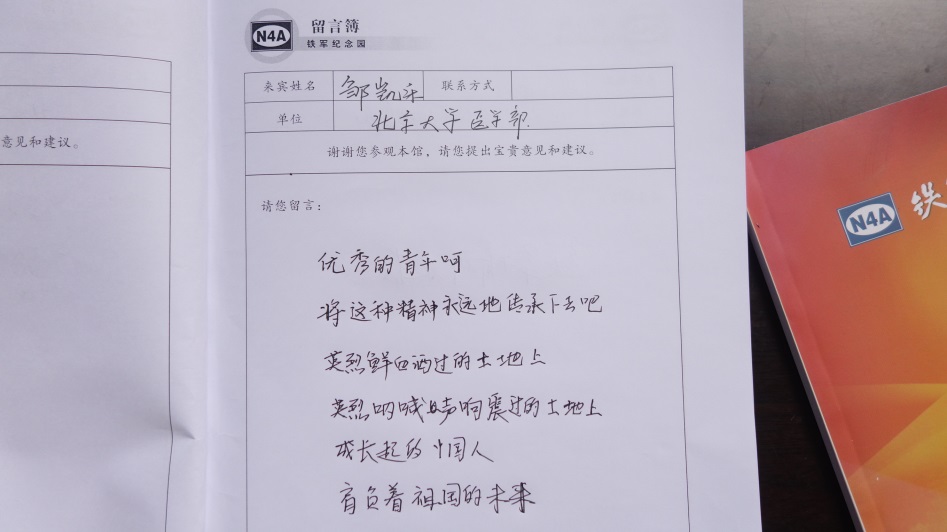 N4A 留言簿
铁军纪念园
来宾姓名 邹凯乐 联系方式
单位 北京大学医学部
意见和建议。
谢谢您参观本馆，请您提出宝贵意见和建议。
请您留言：
优秀的青年呵
将这种精神永远地传承下去吧
英烈鲜血洒过的土地上
英烈呐喊声响震过的土地上
成长起的中国人
肩负着祖国的未来
N4A 铁